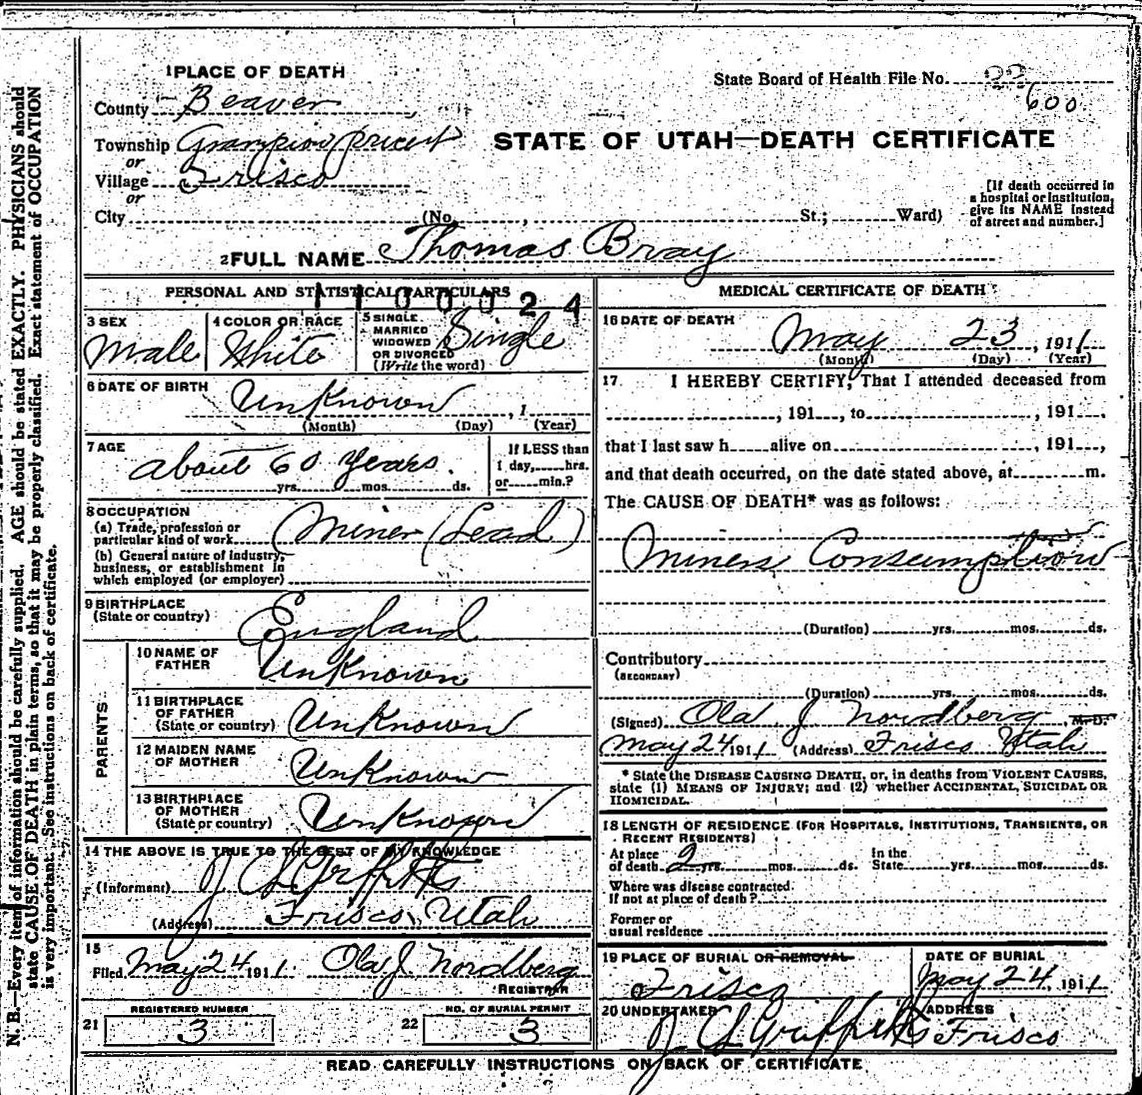 1 PLACE OF DEATH
State Board of Health File No. 22
600
County Beaver
STATE OF UTAH—DEATH CERTIFICATE
Township Grampion precint
or
Village Frisco
or
City (No. , St.; Ward)
[If death occurred in
a hospital or institution,
give its NAME instead
of street and number.]
2 FULL NAME Thomas Bray
PERSONAL AND STATISTICAL PARTICULARS
1100024
3 SEX
Male
4 COLOR OR RACE
White
5 SINGLE
MARRIED
WIDOWED
OR DIVORCED
(Write the word)
Single
6 DATE OF BIRTH
Unknown , 1
(Month) (Day) (Year)
7 AGE
about 60 years.
yrs. mos. ds.
If LESS than
1 day, hrs.
or min.?
8 OCCUPATION
(a) Trade, profession or
particular kind of work Miner (Lead)
(b) General nature of industry,
business, or establishment in
which employed (or employer)
9 BIRTHPLACE
(State or country)
England
PARENTS
10 NAME OF
FATHER
Unknown
11 BIRTHPLACE
OF FATHER
(State or country)
Unknown
12 MAIDEN NAME
OF MOTHER
Unknown
13 BIRTHPLACE
OF MOTHER
(State or country)
Unknown
14 THE ABOVE IS TRUE TO THE BEST OF MY KNOWLEDGE
(Informant) J Griffitts
(Address) Frisco, Utah
15
Filed May 24 1911 Ola J Nordberg
REGISTRAR
21
REGISTERED NUMBER
3
22
NO. OF BURIAL PERMIT
3
MEDICAL CERTIFICATE OF DEATH
16 DATE OF DEATH
May 23 , 1911
(Month) (Day) (Year)
17 I HEREBY CERTIFY, That I attended deceased from
, 191 , to , 191 ,
that I last saw h alive on , 191 ,
and that death occurred, on the date stated above, at m.
The CAUSE OF DEATH* was as follows:
Miners Consumption
(Duration) yrs. mos. ds.
Contributory
(SECONDARY)
(Duration) yrs. mos. ds.
(Signed) Ola J Nordberg , M.D.
May 24 1911 (Address) Frisco Utah
* State the DISEASE CAUSING DEATH, or, in deaths from VIOLENT CAUSES,
state (1) MEANS OF INJURY; and (2) whether ACCIDENTAL, SUICIDAL OR
HOMICIDAL.
18 LENGTH OF RESIDENCE (FOR HOSPITALS, INSTITUTIONS, TRANSIENTS, OR
RECENT RESIDENTS)
At place
of death 2 yrs. mos. ds. In the
State yrs. mos. ds.
Where was disease contracted
if not at place of death?
Former or
usual residence
19 PLACE OF BURIAL OR REMOVAL
Frisco
DATE OF BURIAL
May 24, 1911
20 UNDERTAKER
J Griffitts
ADDRESS
Frisco
READ CAREFULLY INSTRUCTIONS ON BACK OF CERTIFICATE
N. B.—Every item of information should be carefully supplied. AGE should be stated EXACTLY. PHYSICIANS should
state CAUSE OF DEATH in plain terms, so that it may be properly classified. Exact statement of OCCUPATION
is very important. See instructions on back of certificate.